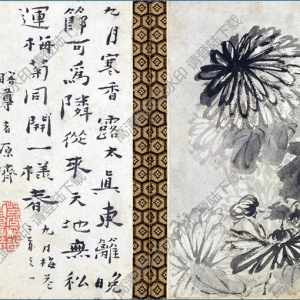 九月寒香露太真東籬晚
節可為隣從來天地無私
運梅菊同開一樣春 九月梅花
瞎尊者原濟